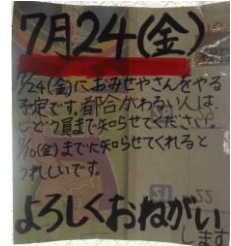 7月24(金)
7/24(金)におみせやさんをやる
予定です。都合がわるい人は、
じどう員まで知らせてください。
7/10(金)までに知らせてくれると
うれしいです。
よろしくおねがい
します